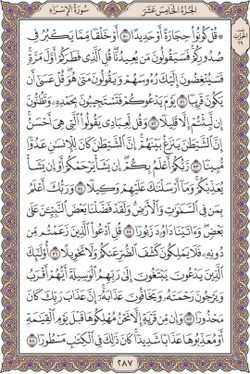 سُورَةُ الإِسۡرَاءِ
الجُزۡءُ الخَامِسَ عَشَرَ
۞ قُلۡ كُونُواْ حِجَارَةً أَوۡ حَدِيدًا ٥٠ أَوۡ خَلۡقٗا مِّمَّا يَكۡبُرُ فِي
صُدُورِكُمۡۚ فَسَيَقُولُونَ مَن يُعِيدُنَاۖ قُلِ ٱلَّذِي فَطَرَكُمۡ أَوَّلَ مَرَّةٖۚ
فَسَيُنۡغِضُونَ إِلَيۡكَ رُءُوسَهُمۡ وَيَقُولُونَ مَتَىٰ هُوَۖ قُلۡ عَسَىٰٓ أَن
يَكُونَ قَرِيبٗا ٥١ يَوۡمَ يَدۡعُوكُمۡ فَتَسۡتَجِيبُونَ بِحَمۡدِهِۦ وَتَظُنُّونَ
إِن لَّبِثۡتُمۡ إِلَّا قَلِيلٗا ٥٢ وَقُل لِّعِبَادِي يَقُولُواْ ٱلَّتِي هِيَ أَحۡسَنُۚ
إِنَّ ٱلشَّيۡطَٰنَ يَنزَغُ بَيۡنَهُمۡۚ إِنَّ ٱلشَّيۡطَٰنَ كَانَ لِلۡإِنسَٰنِ عَدُوّٗا
مُّبِينٗا ٥٣ رَّبُّكُمۡ أَعۡلَمُ بِكُمۡۖ إِن يَشَأۡ يَرۡحَمۡكُمۡ أَوۡ إِن يَشَأۡ
يُعَذِّبۡكُمۡۚ وَمَآ أَرۡسَلۡنَٰكَ عَلَيۡهِمۡ وَكِيلٗا ٥٤ وَرَبُّكَ أَعۡلَمُ
بِمَن فِي ٱلسَّمَٰوَٰتِ وَٱلۡأَرۡضِۗ وَلَقَدۡ فَضَّلۡنَا بَعۡضَ ٱلنَّبِيِّـۧنَ عَلَىٰ
بَعۡضٖۖ وَءَاتَيۡنَا دَاوُۥدَ زَبُورٗا ٥٥ قُلِ ٱدۡعُواْ ٱلَّذِينَ زَعَمۡتُم مِّن
دُونِهِۦ فَلَا يَمۡلِكُونَ كَشۡفَ ٱلضُّرِّ عَنكُمۡ وَلَا تَحۡوِيلًا ٥٦ أُوْلَٰٓئِكَ
ٱلَّذِينَ يَدۡعُونَ يَبۡتَغُونَ إِلَىٰ رَبِّهِمُ ٱلۡوَسِيلَةَ أَيُّهُمۡ أَقۡرَبُ
وَيَرۡجُونَ رَحۡمَتَهُۥ وَيَخَافُونَ عَذَابَهُۥٓۚ إِنَّ عَذَابَ رَبِّكَ كَانَ
مَحۡذُورٗا ٥٧ وَإِن مِّن قَرۡيَةٍ إِلَّا نَحۡنُ مُهۡلِكُوهَا قَبۡلَ يَوۡمِ ٱلۡقِيَٰمَةِ
أَوۡ مُعَذِّبُوهَا عَذَابٗا شَدِيدٗاۚ كَانَ ذَٰلِكَ فِي ٱلۡكِتَٰبِ مَسۡطُورٗا ٥٨
٢٨٧